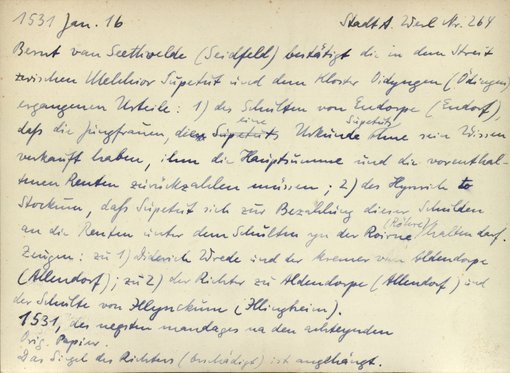 1531 Jan. 16 Stadt A. Werl Nr. 264
Bernt van Seethvelde (Seidfeld) bestätigt die in dem Streit
zwischen Melchior Supetut und dem Kloster Odyngen (Ödingen)
ergangenen Urteile: 1) des Schulten von Endorpe (Endorf),
daß die Jungfrauen, die eine Supetuts Urkunde ohne sein Wissen
verkauft haben, ihm die Hauptsumme und die vorenthal-
tenen Renten zurückzahlen müssen; 2) des Hynrich to
Stockum, daß Supetut sich zur Bezahlung dieser Schulden
an die Renten unter dem Schulten yn der Roirne (Röhre) halten darf.
Zeugen: zu 1) Diderich Wrede und der Kremer van Aldendorpe
(Allendorf); zu 2) der Richter zu Aldendorpe (Allendorf) und
der Schulte von Illynckum (Illingheim).
1531, des negsten mandages na den achteynden
Orig. Papier.
Das Siegel des Richters (beschädigt) ist angehängt.